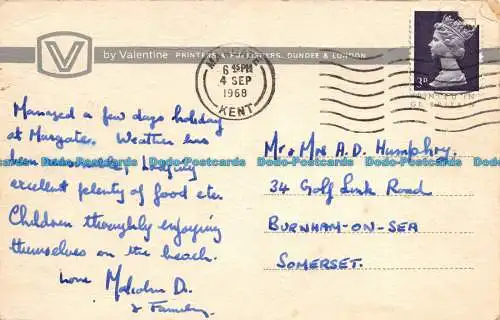 by Valentine PRINTERS & PUBLISHERS, DUNDEE & LONDON
V
6 45PM
4 SEP
1968
KENT
3D
Managed a few days holiday
at Margate. Weather has
been
excellent plenty of food etc.
Children thoroughly enjoying
themselves on the beach.
Love Malcolm D.
& Family.
Mr & Mrs A.D. Humphry.
34 Golf Link Road
BURNHAM-ON-SEA
SOMERSET.
Dodo-Postcards Dodo-Postcards Dodo-Postcards Dodo-Postcards